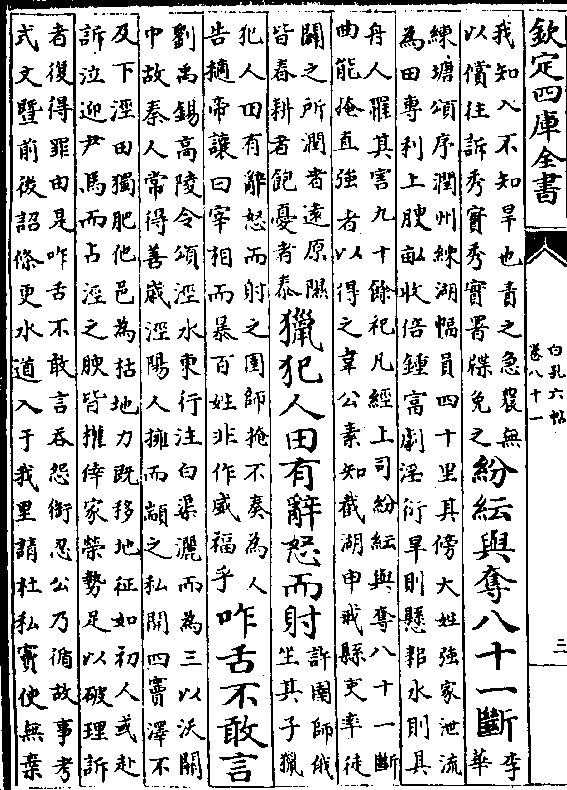 欽定四庫全書
白孔六帖
卷八十一
三
我知入不知旱也責之急農無
以償往訴秀實秀實署牒免之
紛紜與奪八十一斷
李
華
練塘頌序潤州練湖幅員四十里其傍大姓強家泄流
為田專利上腴畝收倍鍾富劇淫衍旱則懸耜水則具
舟人罹其害九十餘祀凡經上司紛紜與奪八十一斷
曲能掩直強者以得之韋公素知截湖申戒縣吏率徒
闢之所潤者遠原隰
皆春耕者飽憂者泰
獵犯人田有辭怒而射
許圉師俄
坐其子獵
犯人田有辭怒而射之圉師掩不奏為人
告擿帝讓曰宰相而暴百姓非作威福乎
咋舌不敢言
劉禹錫高陵令頌涇水東行注白渠灑而為三以沃關
中故秦人常得善歲涇陽人擁而顓之私開四竇澤不
及下涇田獨肥他邑為枯地力既移地征如初人或赴
訴泣迎尹馬而占涇之腴皆權倖家榮勢足以破理訴
者復得罪由是咋舌不敢言吞怨銜忍公乃循故事考
式文暨前後詔條更水道入于我里請杜私竇使無棄